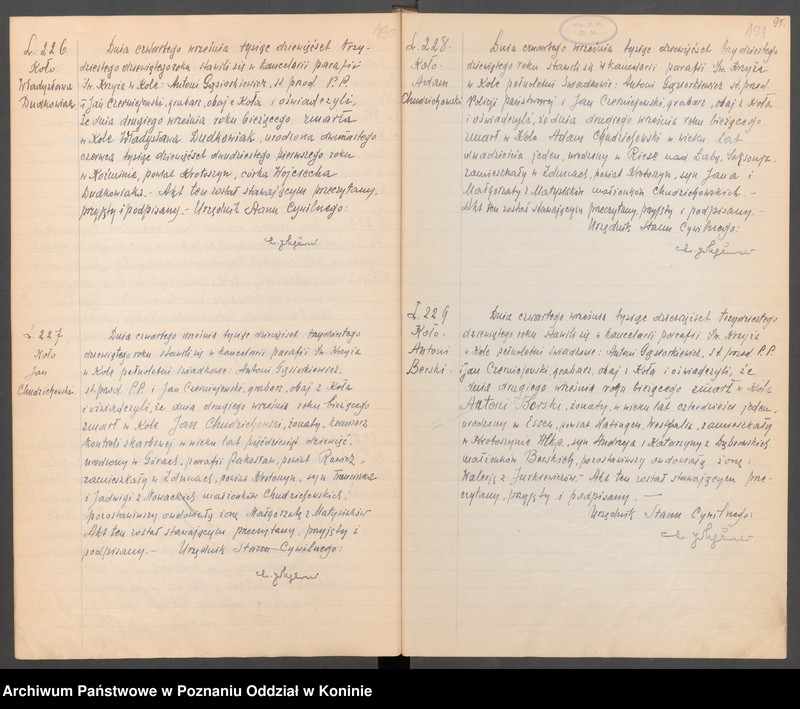 190
L. 226.
Koło
Władysława
Dudkowiak
Dnia czwartego września tysiąc dziewięćset trzy-
dziestego dziewiątego roku stawili się w kancelarii parafii
Św. Krzyża w Kole: Antoni Gąsiorkiewicz, st. przod. P.P.
i Jan Czerniejewski, grabarz, obaj z Koła i oświadczyli,
że dnia drugiego września roku bieżącego zmarła
w Kole Władysława Dudkowiak, urodzona dwunastego
czerwca tysiąc dziewięćset dwudziestego pierwszego roku
w Koźminie, powiat Krotoszyn, córka Wojciecha
Dudkowiaka. – Akt ten został stawającym przeczytany,
przyjęty i podpisany. – Urzędnik Stanu Cywilnego:
L. 227
Koło
Jan
Chudzichowski
Dnia czwartego września tysiąc dziewięćset trzydziestego
dziewiątego roku stawili się w kancelarii parafii Św. Krzyża
w Kole pełnoletni świadkowie: Antoni Gąsiorkiewicz,
st. przod. P.P. i Jan Czerniejewski, grabarz, obaj z Koła
i oświadczyli, że dnia drugiego września roku bieżącego
zmarł w Kole Jan Chudzichowski, żonaty, komisarz
kontroli skarbowej w wieku lat pięćdziesiąt dziewięć,
urodzony w parafii powiat Rawicz,
zamieszkały w Zdunach, powiat Krotoszyn, syn Franciszka
i Jadwigi z Nowackich małżonków Chudzichowskich,
pozostawiwszy owdowiałą żonę Małgorzatę z Matysików
Akt ten został stawającym przeczytany, przyjęty i
podpisany. – Urzędnik Stanu Cywilnego:
191
95.
L. 228.
Koło
Adam
Chudzichowski
Dnia czwartego września tysiąc dziewięćset trzydziestego
dziewiątego roku stawili się w kancelarii parafii Św. Krzyża
w Kole pełnoletni świadkowie: Antoni Gąsiorkiewicz st. przod.
Policji państwowej i Jan Czerniejewski, grabarz, obaj z Koła
i oświadczyli, że dnia drugiego września roku bieżącego
zmarł w Kole Adam Chudzichowski w wieku lat
dwadzieścia jeden, urodzony w Riese nad Łabą, Saksonja,
zamieszkały w Zdunach, powiat Krotoszyn, syn Jana i
Małgorzaty z Matysików małżonków Chudzichowskich. –
Akt ten został stawającym przeczytany, przyjęty i podpisany. –
Urzędnik Stanu Cywilnego:
L. 229
Koło.
Antoni
Berski.
Dnia czwartego września tysiąc dziewięćset trzydziestego
dziewiątego roku stawili się w kancelarii parafii Św. Krzyża
w Kole pełnoletni świadkowie: Antoni Gąsiorkiewicz, st. przod. P.P.
i Jan Czerniejewski, grabarz, obaj z Koła i oświadczyli, że
dnia drugiego września roku bieżącego zmarł w Kole
Antoni Berski, żonaty, w wieku lat czterdzieści jeden,
urodzony w Essen, powiat Hatingen, Westfalia, zamieszkały
w Krotoszynie Wlkp., syn Andrzeja i Katarzyny z Dąbrowskich
małżonków Berskich, pozostawiwszy owdowiałą żonę
Walerię z Jurkiewiczów. – Akt ten został stawającym prze-
czytany, przyjęty i podpisany. –
Urzędnik Stanu Cywilnego:
Archiwum Państwowe w Poznaniu Oddział w Koninie